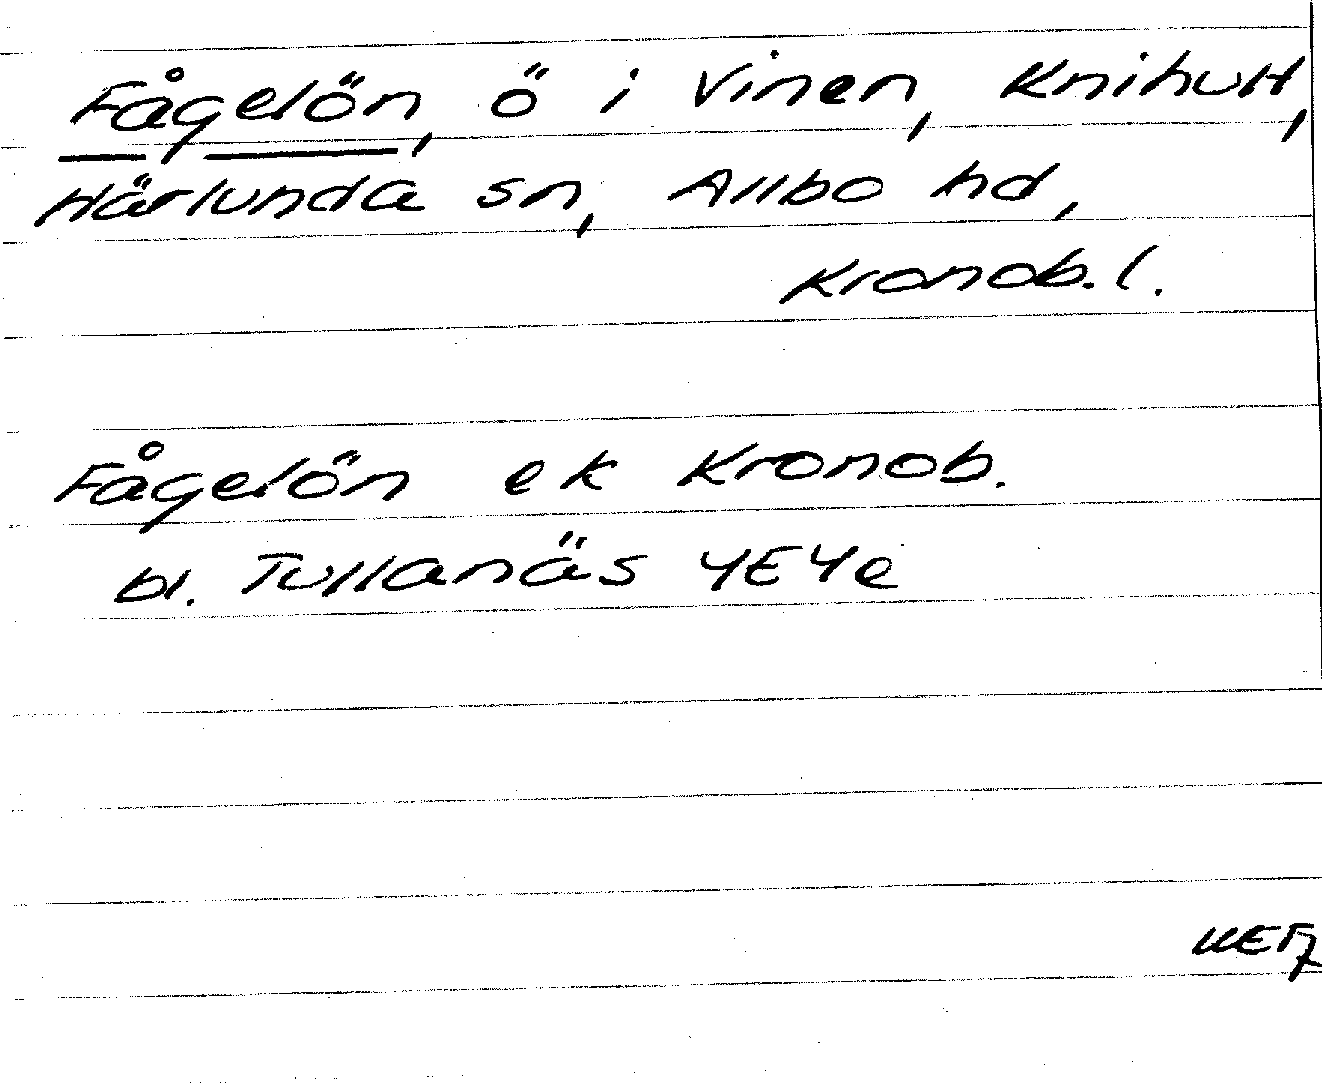 Fågelön, ö i Vinen, Knihult,
Härlunda sn, Allbo hd,
Kronob. l.
Fågelön ek Kronob.
bl. Tullanäs 4E4e